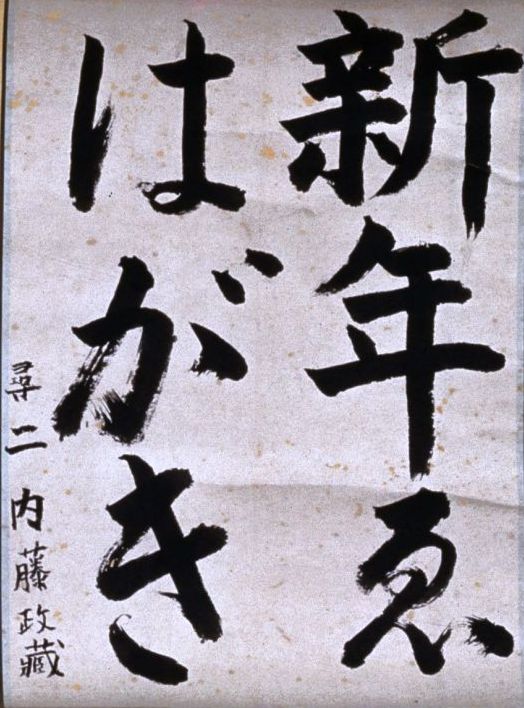 新年ゑ
はがき
尋二 内藤政藏